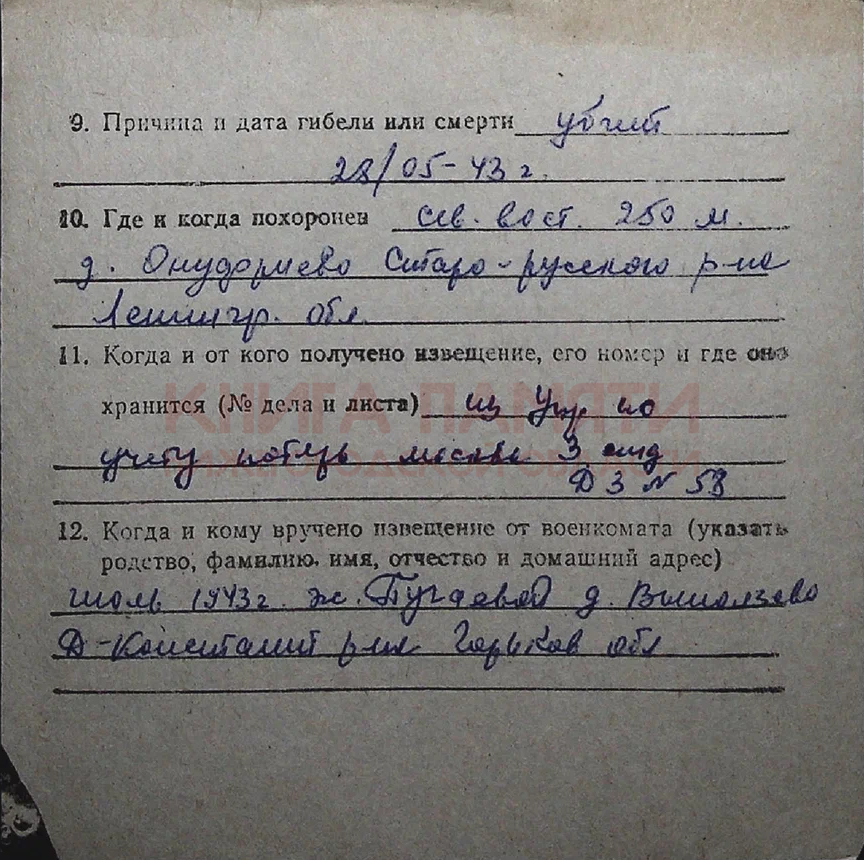 9. Причина и дата гибели или смерти убит
28/05-43 г.
10. Где и когда похоронен сев. вост. 250 м.
д. Онуфриево Старо-русского р-на
Ленингр. обл.
11. Когда и от кого получено извещение, его номер и где оно
КНИГА ПАМЯТИ
хранится (№ дела и листа) из Упр по
учету потерь москва 3 отд
НИЖЕГОРОДСКОЙ ОБЛАСТИ
Д 3 N 58
12. Когда и кому вручено извещение от военкомата (указать
родство, фамилию, имя, отчество и домашний адрес)
июль 1943 г. ж. Пугаевой д.
Д-Констант р-на Горьков обл